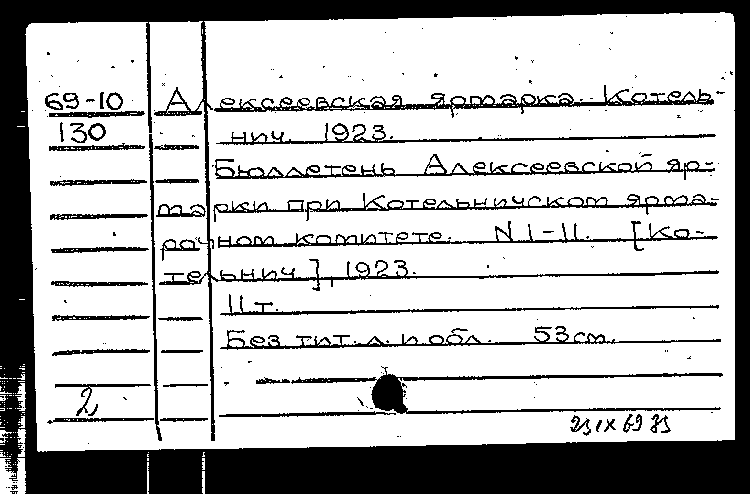 69-10 Алексеевская ярмарка. Котель-
130 нич. 1923.
Бюллетень Алексеевской яр-
марки при Котельничском ярма-
рочном комитете. N 1-11. [Ко-
тельнич], 1923.
11 т.
Без тит. л. и обл. 53 см.
2